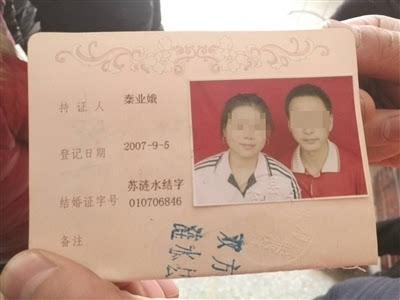 持证人 栾业娥
登记日期 2007-9-5
苏涟水结字
结婚证字号 010706846
备注
双方
涟水